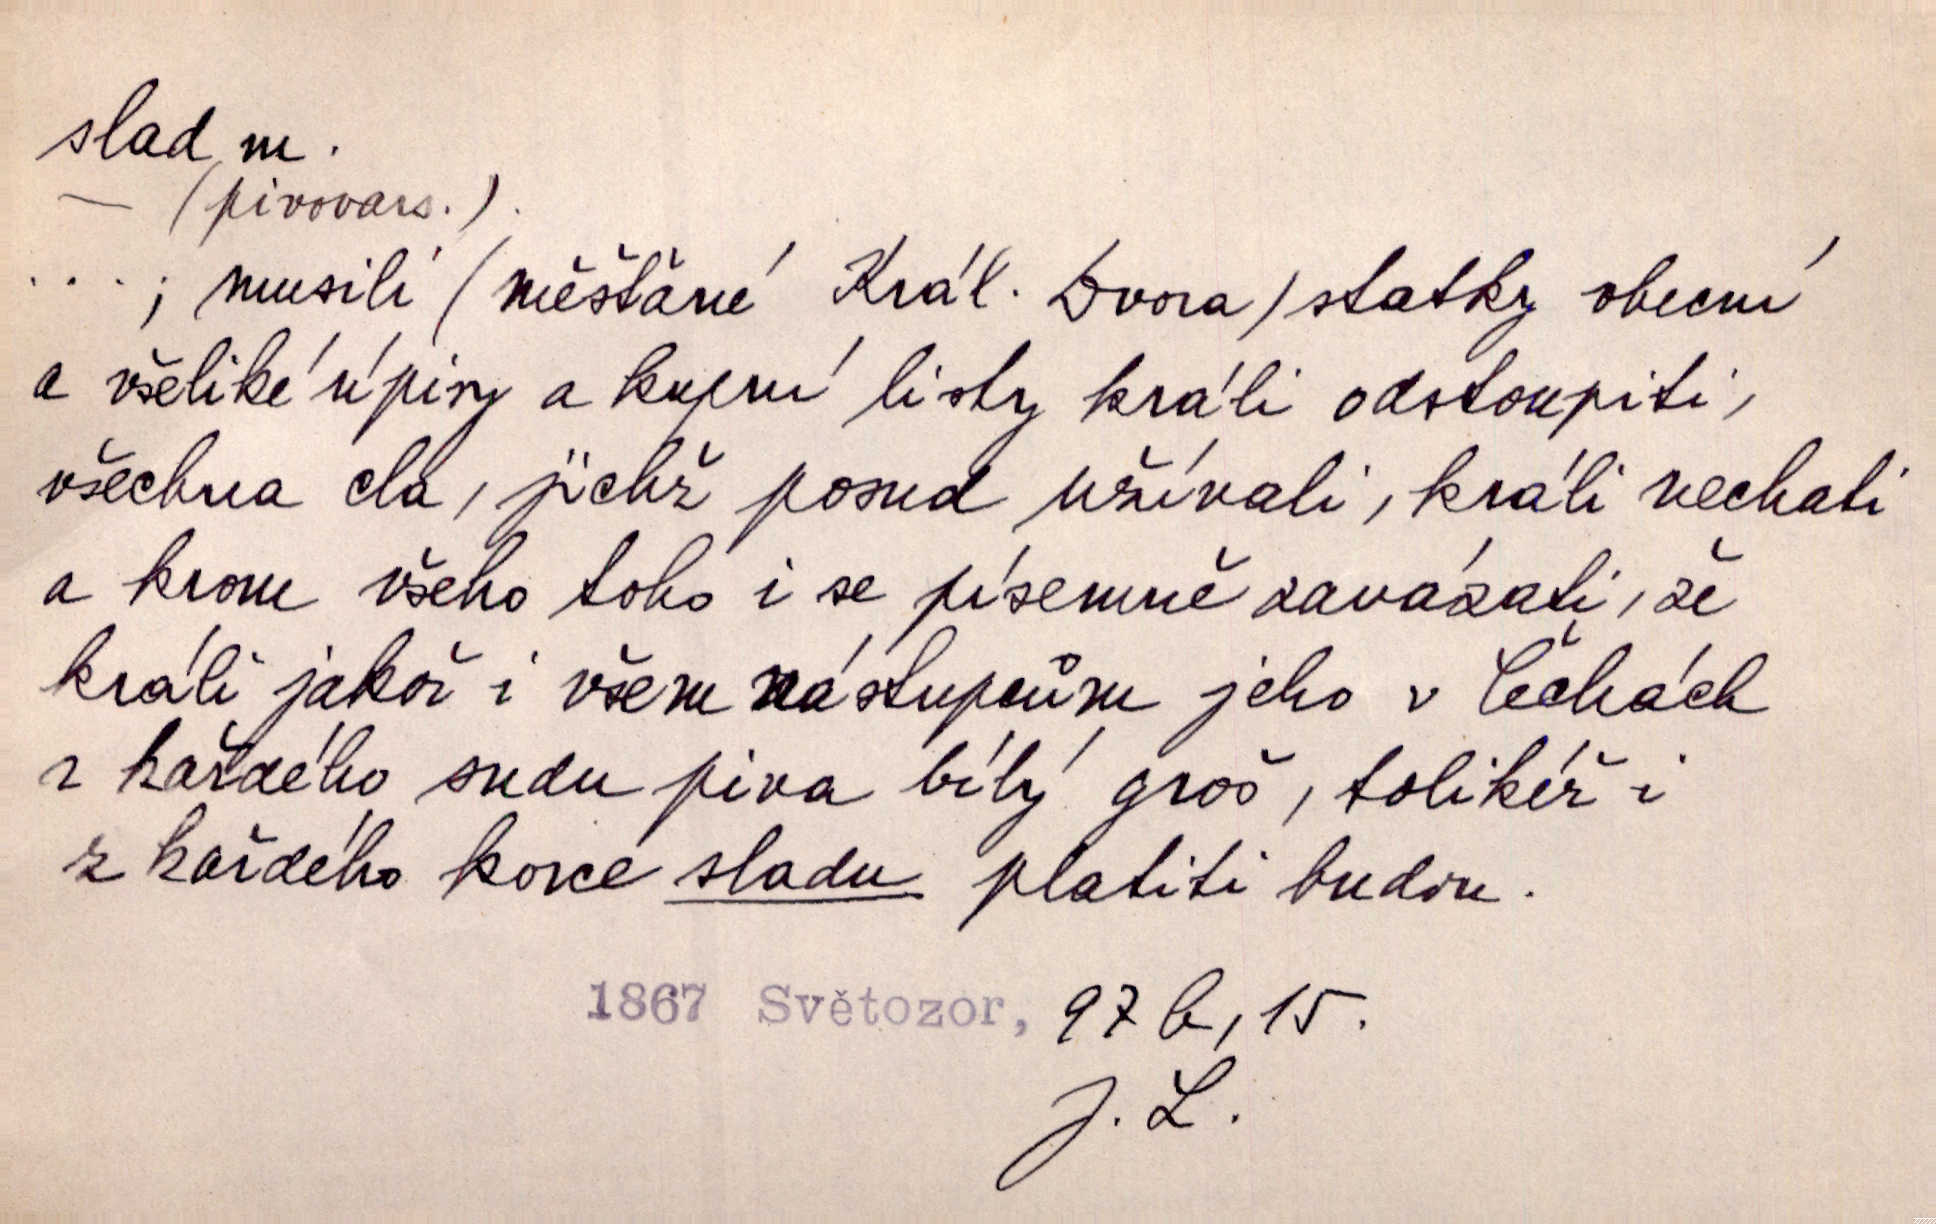 slad m.
— (pivovars.).
...; musili (měšťané Král. Dvora) statky obecní
a všeliké úpisy a kupní listy králi odstoupiti,
všechna cla, jichž posud užívali, králi nechati
a krom všeho toho i se písemně zavázati, že
králi jakož i všem nástupcům jeho v Čechách
z každého sudu piva bílý groš, tolikéž i
z každého korce sladu platiti budou.
1867 Světozor, 97 b, 15.
J. L.